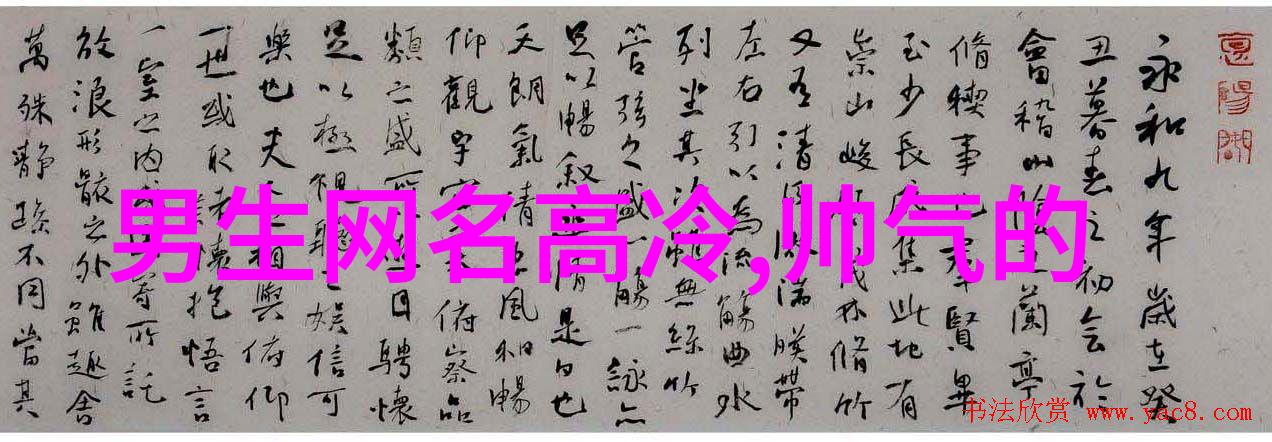 男生网名高冷,帅气的
永和九年歲在癸
丑暮春之初会於
會稽山陰之蘭亭
脩稧事也羣賢畢
至少長咸集此地有
崇山峻茂林脩竹
又有清流激湍暎帶
左右引以為流觴曲水
列坐其次雖無絲竹
管弦之盛一觴一詠亦
足以暢叙情是日也
天朗氣清惠風和暢
仰觀宇宙大俯察品
類之盛所遊目騁懷
足以極視聽娛信可
樂也夫人相與俯仰
一世或取諸懷抱悟言
一室之内或寄所託
放浪形骸之外雖趣舍
萬殊靜躁不同當其
书法欣赏
www.yac8.com